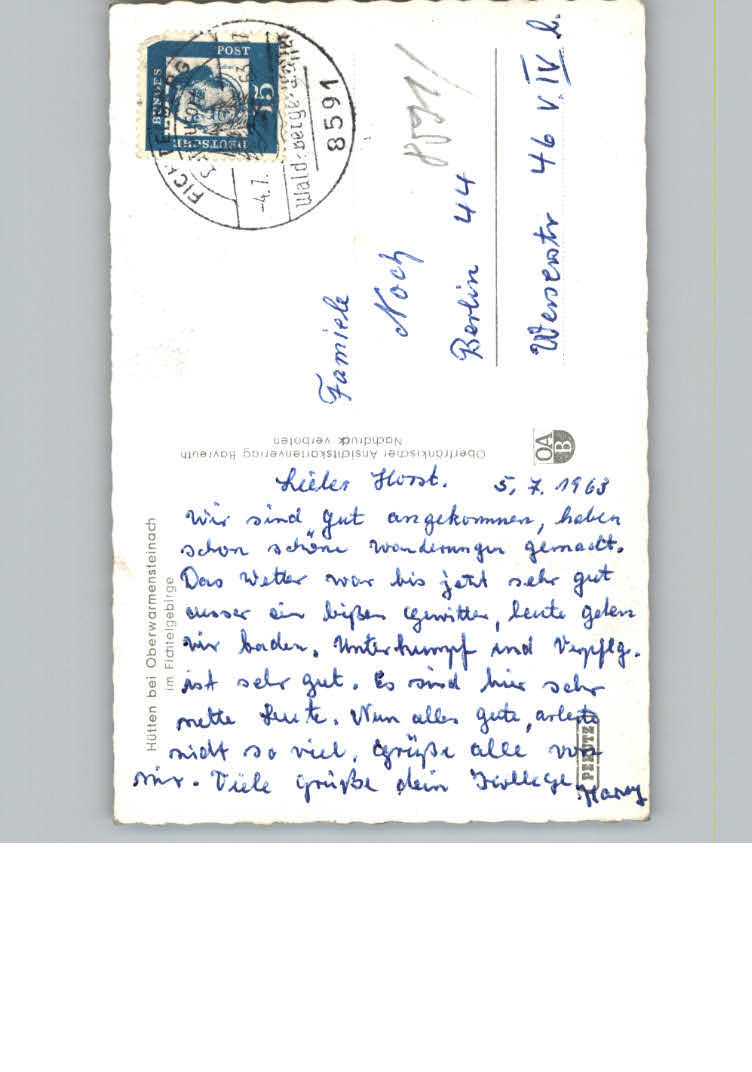 Hütten bei Oberwarmensteinach
im Fichtelgebirge
Lieber Horst. 5. 7. 1963
Wir sind gut angekommen, haben
schon schöne wanderungen gemacht.
Das Wetter war bis jetzt sehr gut
ausser ein bißen Gewitter, heute gehen
wir baden. Unterkumpf und Verpflg.
ist sehr gut. Es sind hier sehr
nette Leute. Nun alles gute, arbeite
nicht so viel. Grüße alle von
mir. Viele Grüße dein Kollege Harry
Oberfränkischer Ansichtskartenverlag Bayreuth
Nachdruck verboten
OA
B
PERUTZ
Familie
Noch
Berlin 44
Weserstr 46 v. IV b.
8591
DEUTSCHE
BUNDES
POST
15
8591
-4.7.